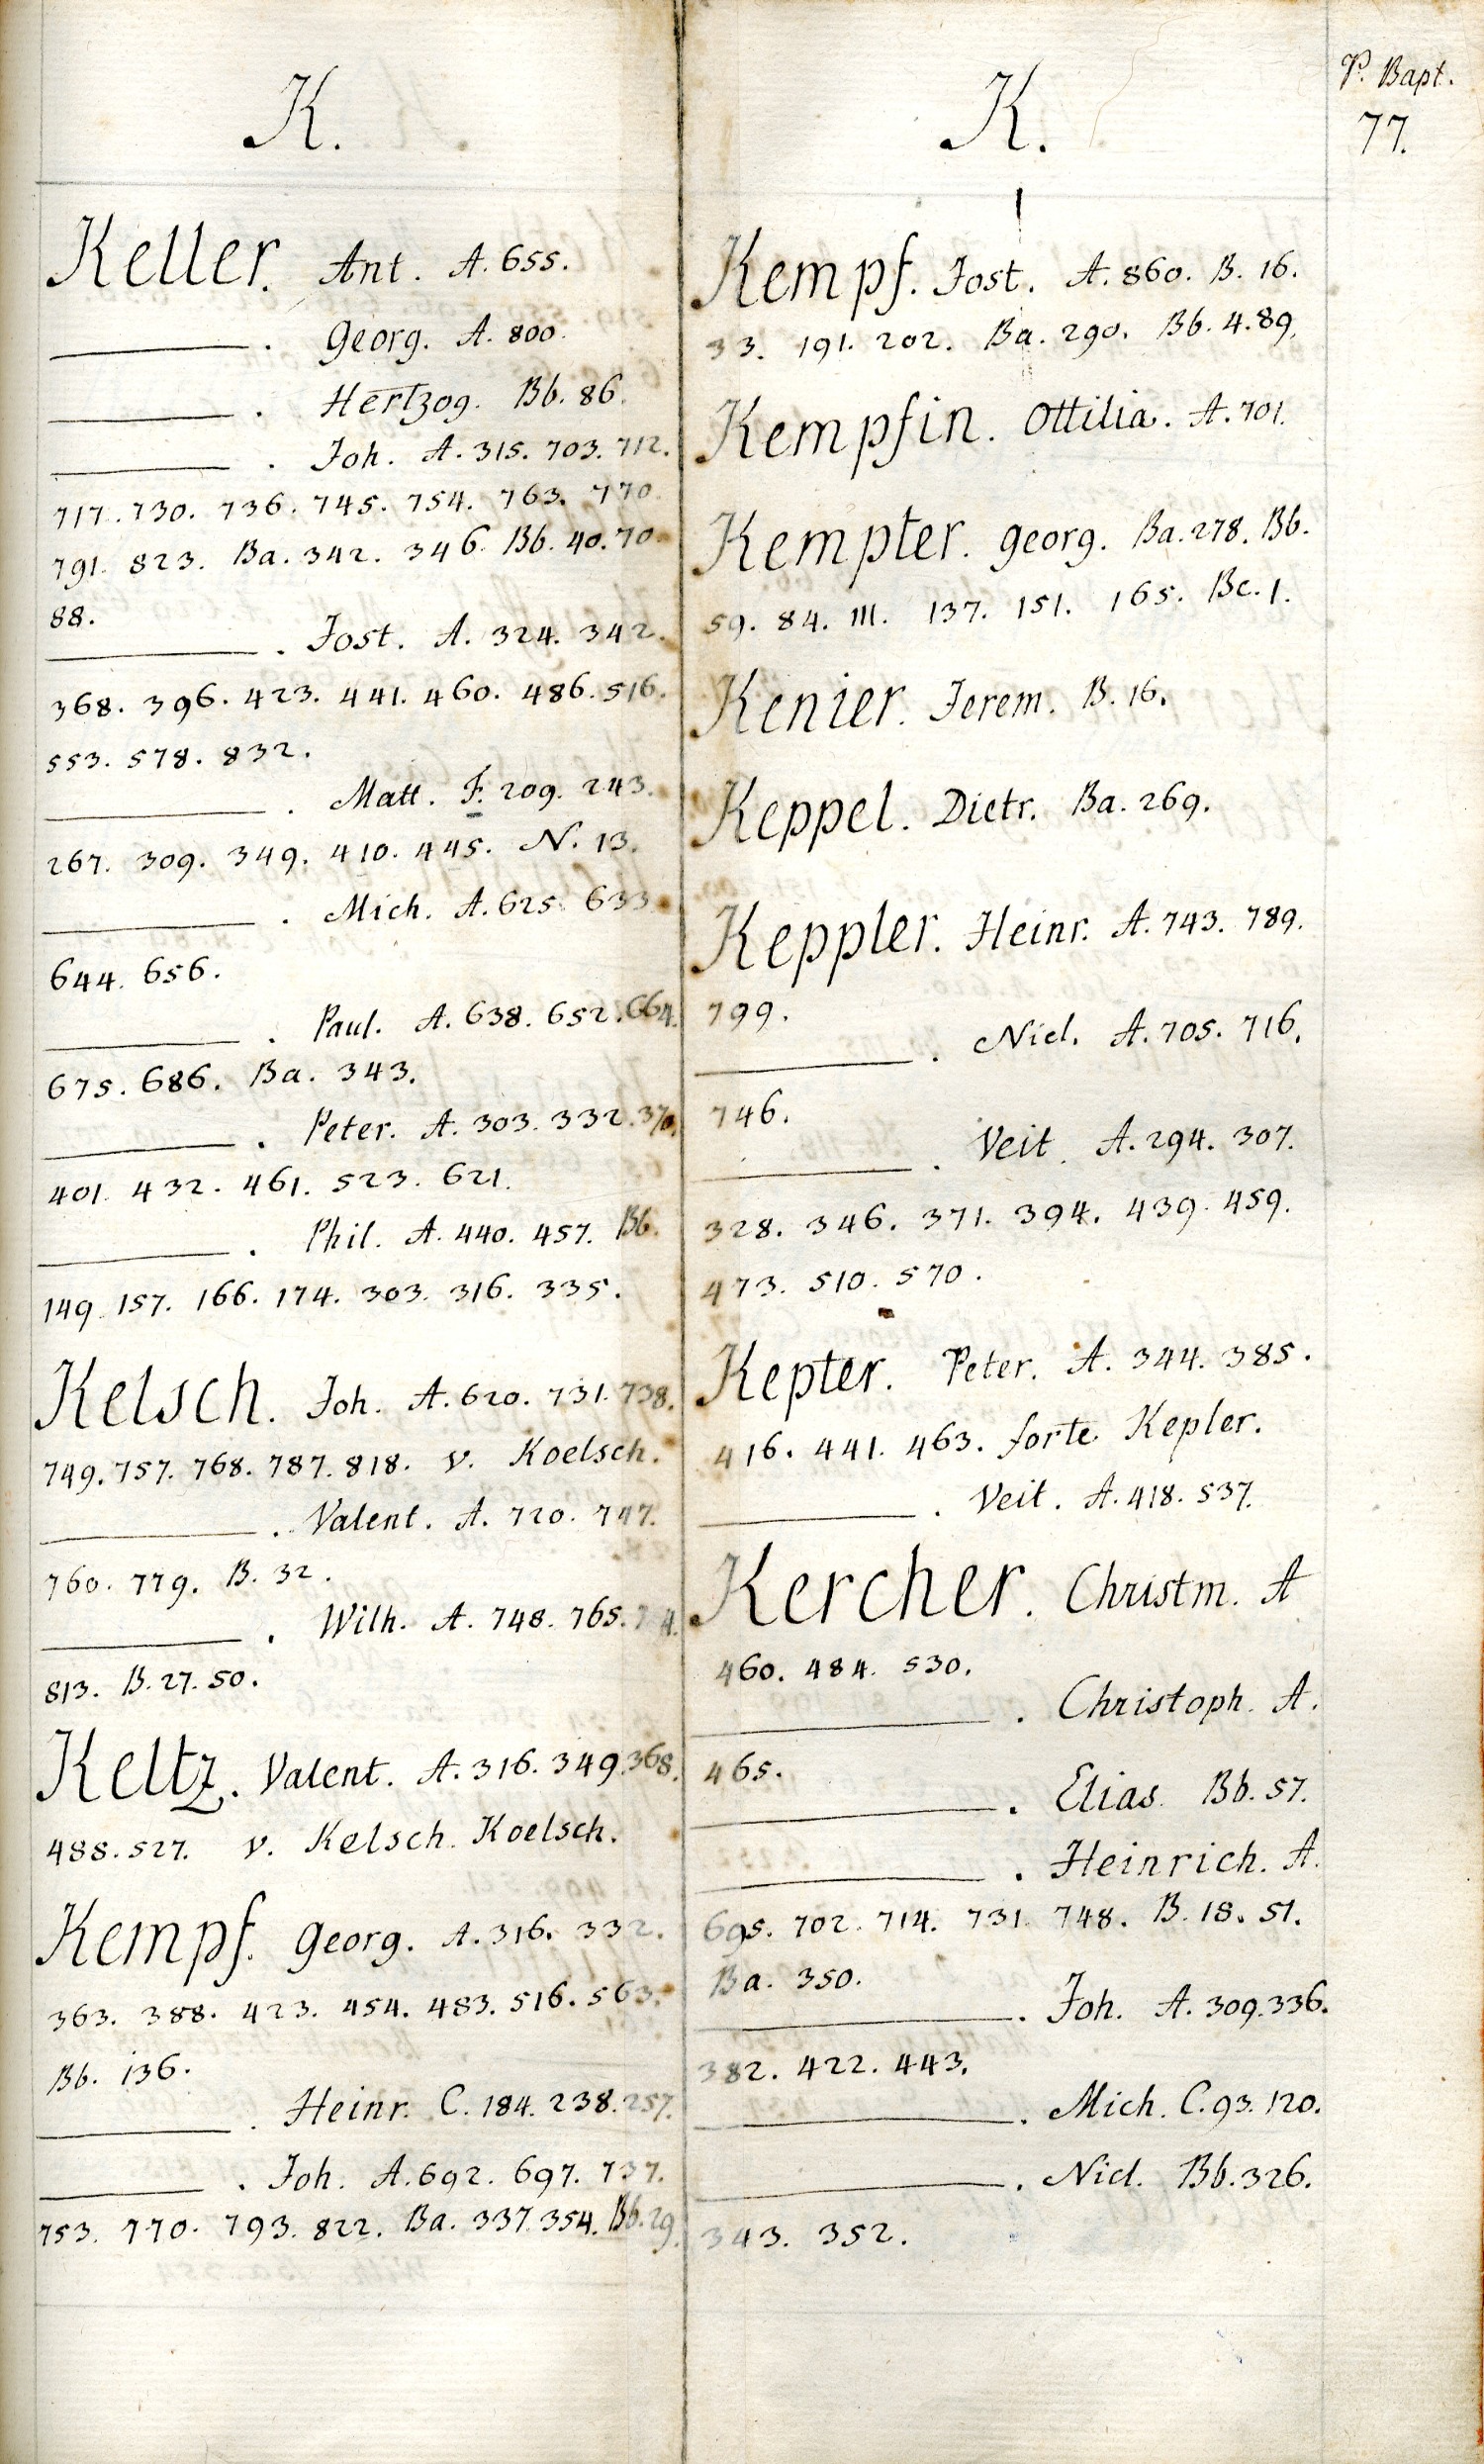 P. Bapt.
77.
K.
Keller. Ant. A. 655.
———. Georg. A. 800.
———. Hertzog. Bb. 86.
———. Joh. A. 315. 703. 712.
717. 730. 736. 745. 754. 763. 770.
791. 823. Ba. 342. 346. Bb. 40. 70.
88.
———. Jost. A. 324. 342.
368. 396. 423. 441. 460. 486. 516.
553. 578. 832.
———. Matt. F. 209. 243.
267. 309. 349. 410. 445. N. 13.
———. Mich. A. 625. 633.
644. 656.
———. Paul. A. 638. 652. 664.
675. 686. Ba. 343.
———. Peter. A. 303. 332. 370.
401. 432. 461. 523. 621.
———. Phil. A. 440. 457. Bb.
149. 157. 166. 174. 303. 316. 335.
Kelsch. Joh. A. 620. 731. 738.
749. 757. 768. 787. 818. v. Koelsch.
———. Valent. A. 720. 747.
760. 779. B. 32.
———. Wilh. A. 748. 765.
813. B. 27. 50.
Keltz. Valent. A. 316. 349. 368.
488. 527. v. Kelsch. Koelsch.
Kempf. Georg. A. 316. 332.
363. 388. 423. 454. 483. 516. 563.
Bb. 136.
———. Heinr. C. 184. 238. 257.
———. Joh. A. 692. 697. 737.
753. 770. 793. 822. Ba. 337. 354. Bb. 29.
K.
Kempf. Jost. A. 860. B. 16.
33. 191. 202. Ba. 290. Bb. 4. 89.
Kempfin. Ottilia. A. 701.
Kempter. Georg. Ba. 278. Bb.
59. 84. 111. 137. 151. 165. Bc. 1.
Kenier. Jerem. B. 16.
Keppel. Dietr. Ba. 269.
Keppler. Heinr. A. 743. 789.
799.
———. Nicl. A. 705. 716.
746.
———. Veit. A. 294. 307.
328. 346. 371. 394. 439. 459.
473. 510. 570.
Kepter. Peter. A. 344. 385.
416. 441. 463. forte Kepler.
———. Veit. A. 418. 537.
Kercher. Christm. A
460. 484. 530.
———. Christoph. A.
465.
———. Elias. Bb. 57.
———. Heinrich. A.
695. 702. 714. 731. 748. B. 18. 51.
Ba. 350.
———. Joh. A. 309. 336.
382. 422. 443.
———. Mich. C. 93. 120.
———. Nicl. Bb. 326.
343. 352.